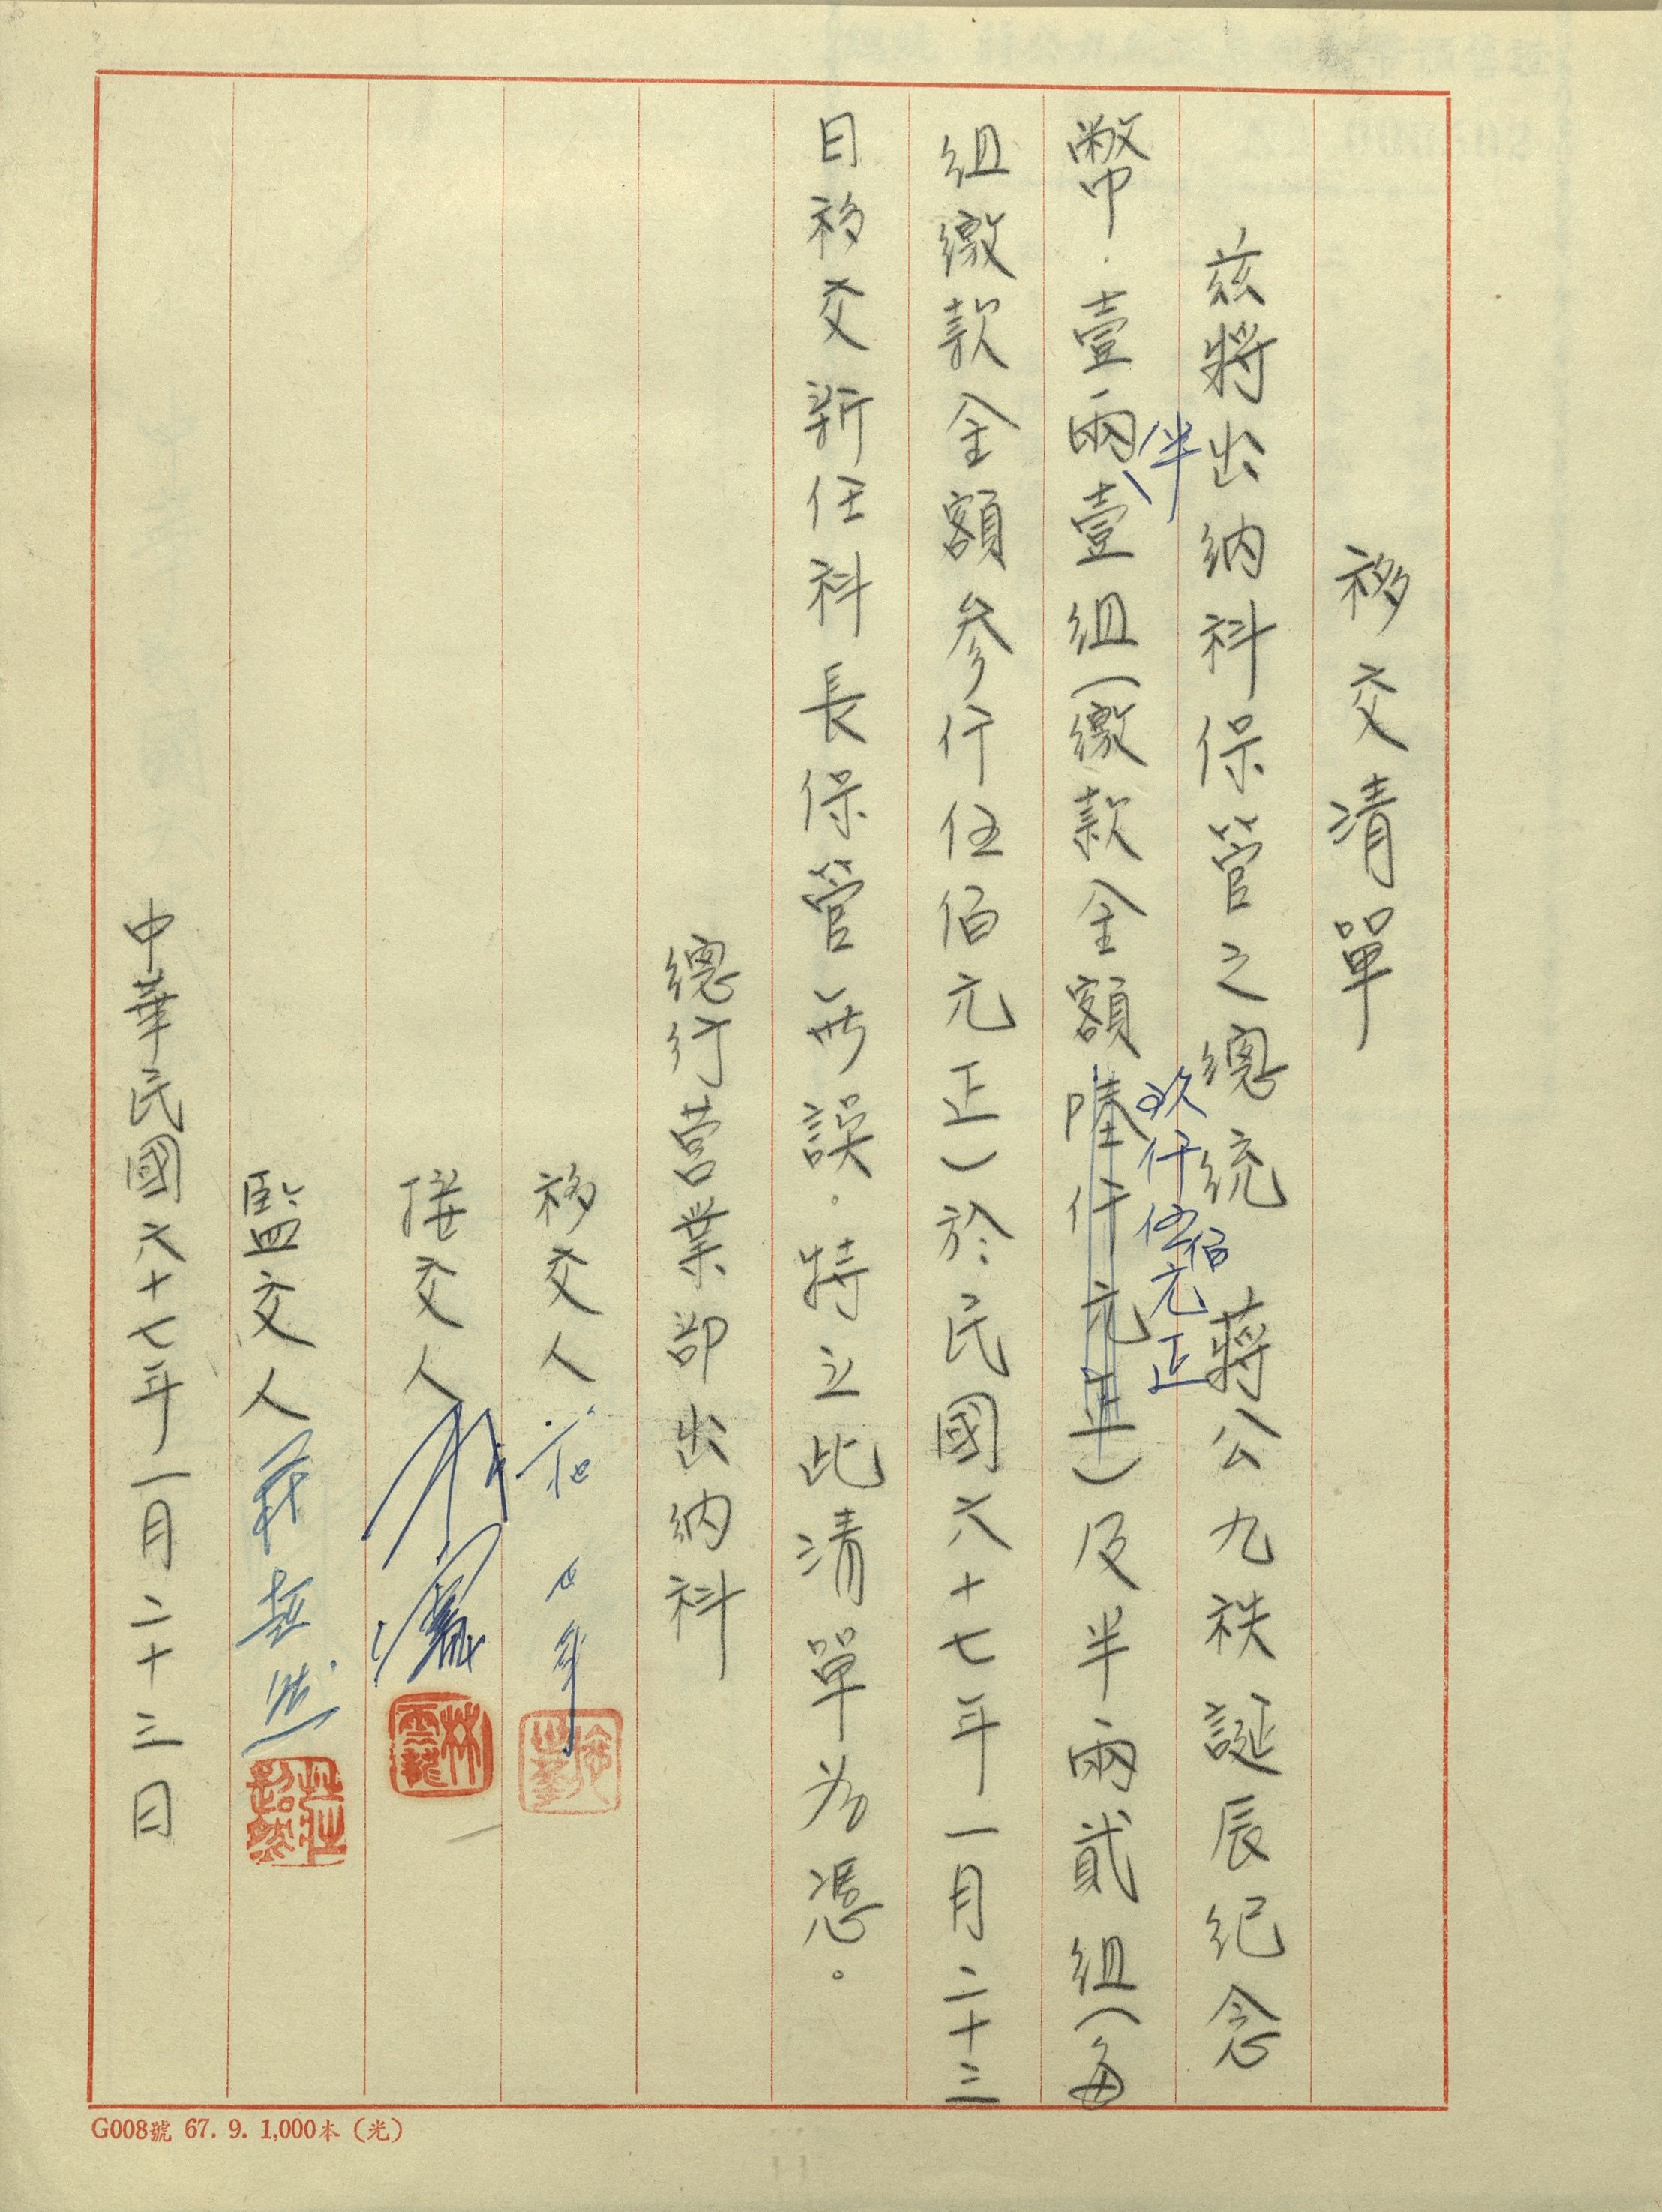 移交清單
茲將出納科保管之總統 蔣公九秩誕辰紀念
幣.壹兩半壹組(繳款金額陸仟元正)及半兩貳組(每
玖仟伍佰元正
組繳款金額參仟伍佰元正)於民國六十七年一月二十三
日移交新任科長保管無誤。特立此清單為憑。
總行營業部出納科
移交人
接交人
林雲龍
監交人 莊超然
莊超然
中華民國六十七年一月二十三日
G008號 67. 9. 1,000本(光)